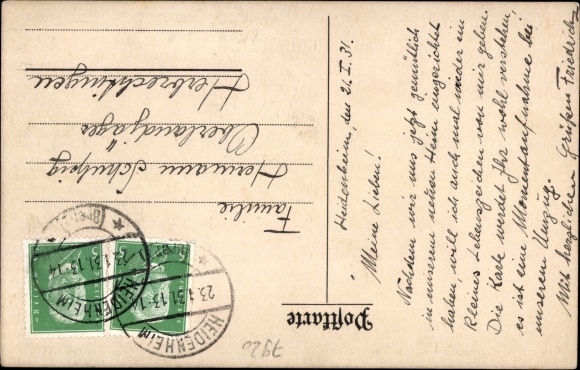 Postkarte
Heidenheim, den 21. I. 31.
Meine Lieben!
Nachdem wir uns jetzt gemütlich
in unserem neuen Heim eingerichtet
haben will ich auch mal wieder ein
kleines Lebenszeichen von mir geben.
Die Karte werdet Ihr wohl verstehen,
es ist eine Momentaufnahme bei
unserem Umzug.
Mit herzlichen Grüßen Friedrich
Familie
Hermann
Oberlandjäger
Herbrechtingen
HEIDENHEIM
23.1.31.13-14
HEIDENHEIM
23.1.31.13-1
7920